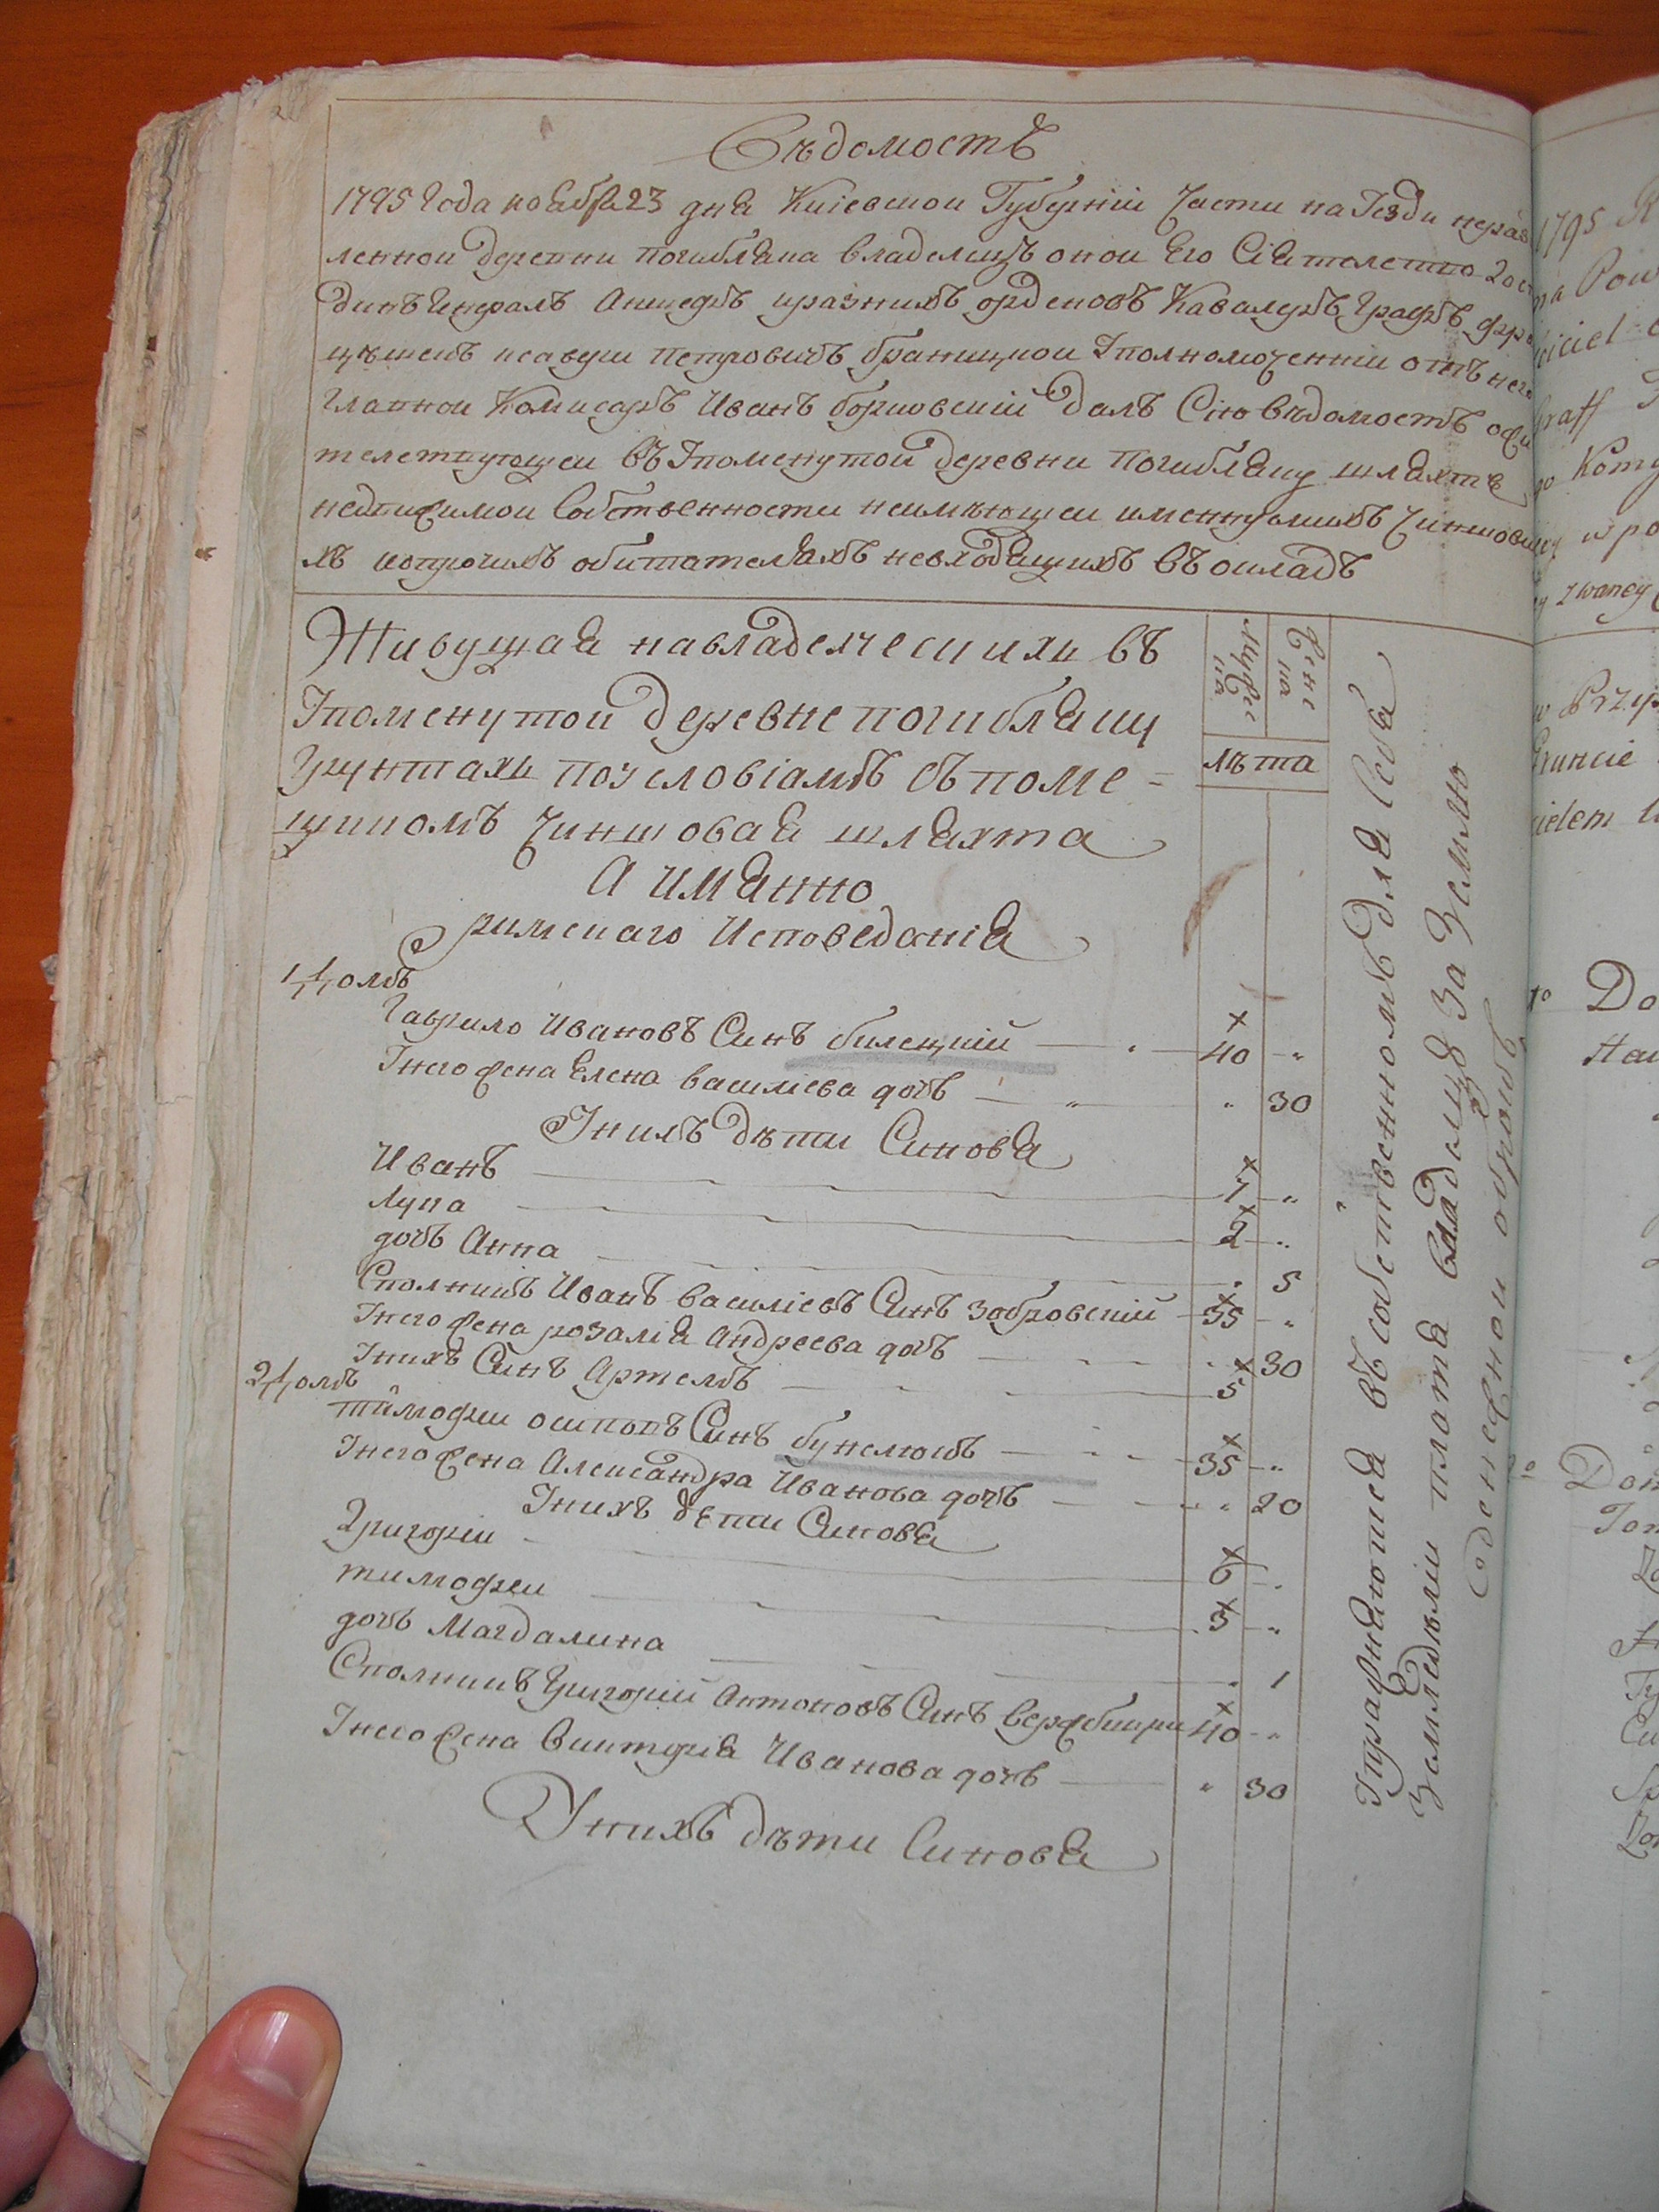 Вѣдомостъ
1795 Года ноября 23 дня Кіевской Губерніи Части на Уезди нераз
ленной деревни погибляка владелецъ оной Его Сіятелство Госп
динъ Генералъ Аншефъ и разнихъ орденовъ Кавалеръ Графъ фра
цѣшекъ ксаверы Петровичъ браницкой Уполномоченній отъ него
Главной Комисаръ Иванъ борковскій Далъ Сію вѣдомостъ о
телствующей въ Упоменутой деревни Погибляку шляхтѣ
недвижимой Собственности неимѣющей именуемихъ чиншови
хъ ипрочихъ обитателяхъ невходящихъ въ окладъ
Живущая навладелческихъ въ
Упоменутой деревне погибляку
Грунтахъ поусловіамъ съ поме=
щикомъ чиншовая шляхта
А Имянно
римскаго Исповеданія
мужеска
женска
лѣта
1, домъ
Гаврило Ивановъ Синъ билецкій 40 "
Унего жена Елена василіева дочъ " 30
Унихъ дѣти Синовя
Иванъ 7 "
Лука 2 "
дочъ Анна " 5
Сполникъ Иванъ Василіевъ Синъ Зобровскій 35 "
Унего жена розалія Андреева дочъ " 30
Унихъ Синъ Артемъ 5
2, домъ
тимофеи осиповъ Синъ 35 "
Унего жена Александра Иванова дочъ " 20
Унихъ дети Синовя
Григорій 6 "
тимофеи 3 "
дочъ Магдалина " 1
Сполникъ Григорій Антоновъ Синъ 40 "
Унего жена викторія Иванова дочъ " 30
Унихъ дѣти Синовя
Упражняются въ собственномъ для себя
Земледѣліи плотя владелцу За Землю
Оденежной оброкъ
1795 R
na Pow
iciel
Graff
go Komy
w po
zwaney
w Przyp
Gruncie
cielem
1o Do
Ha
2o Dom
Tom